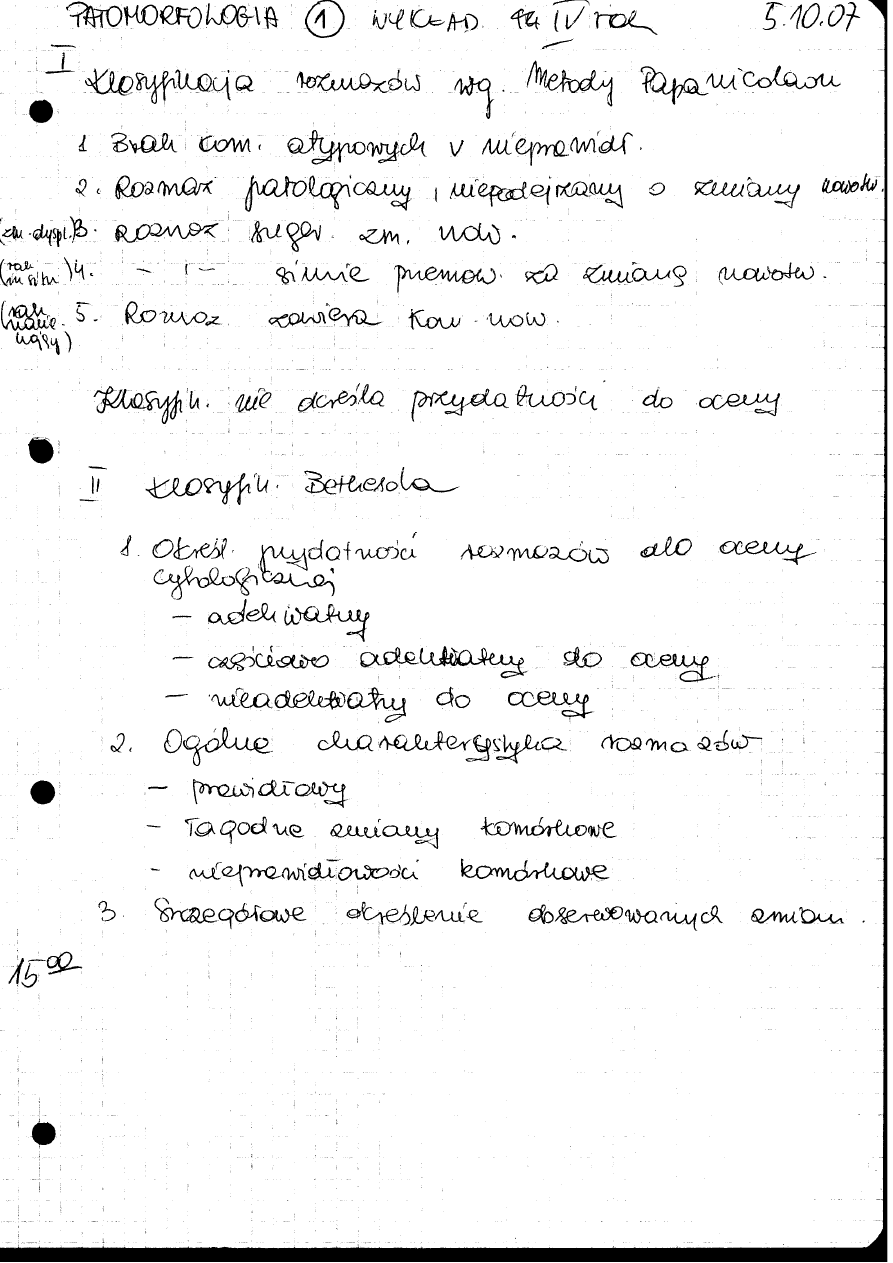 PATOMORFOLOGIA 1 WYKŁAD IV rok 5.10.07
I Klasyfikacja rozmazów wg. Metody Papanicolaou
1 Brak kom. atypowych v nieprawidł.
2. Rozmaz patologiczny, niepodejrzany o zmiany nowotw.
(zm. dyspl.) 3. Rozmaz suger. zm. now.
(rak in situ) 4. - ı - silnie przemow. za zmianą nowotw.
(rak 5. Rozmaz zawiera kom now.
Klasyfik. nie określa przydatności do oceny
II Klasyfik. Bethesda
1. Określ. przydatności rozmazów do oceny
cytologicznej
- adekwatny
- częściowo adekwatny do oceny
- nieadekwatny do oceny
2. Ogólna charakterystyka rozmazów
- prawidłowy
- łagodne zmiany komórkowe
- nieprawidłowości komórkowe
3. Szczegółowe określenie obserwowanych zmian.
15 00